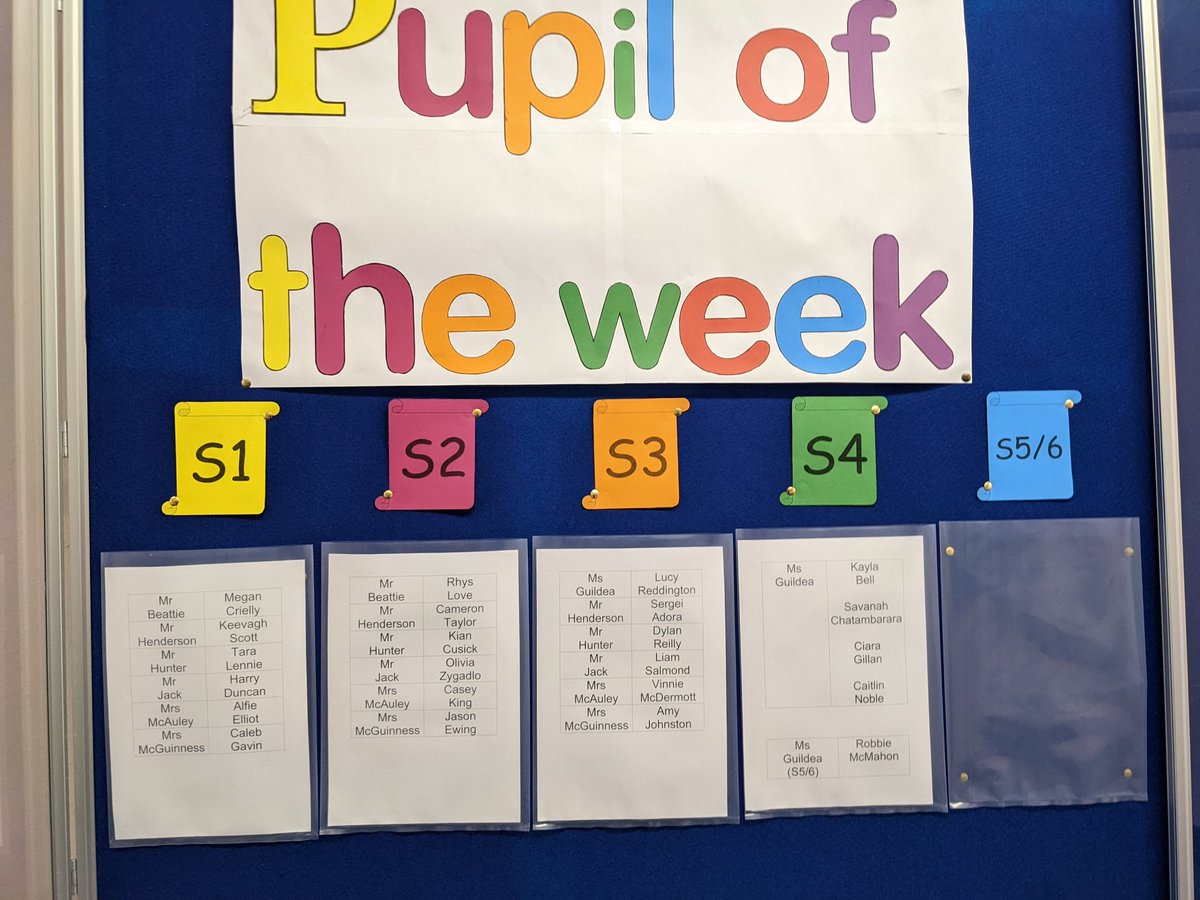 Pupil of
the week
S1
S2
S3
S4
S5/6
Mr
Beattie
Megan
Crielly
Mr
Henderson
Keevagh
Scott
Mr
Hunter
Tara
Lennie
Mr
Jack
Harry
Duncan
Mrs
McAuley
Alfie
Elliot
Mrs
McGuinness
Caleb
Gavin
Mr
Beattie
Rhys
Love
Mr
Henderson
Cameron
Taylor
Mr
Hunter
Kian
Cusick
Mr
Jack
Olivia
Zygadlo
Mrs
McAuley
Casey
King
Mrs
McGuinness
Jason
Ewing
Ms
Guildea
Lucy
Reddington
Mr
Henderson
Sergei
Adora
Mr
Hunter
Dylan
Reilly
Mr
Jack
Liam
Salmond
Mrs
McAuley
Vinnie
McDermott
Mrs
McGuinness
Amy
Johnston
Ms
Guildea
Kayla
Bell
Savanah
Chatambarara
Ciara
Gillan
Caitlin
Noble
Ms
Guildea
(S5/6)
Robbie
McMahon